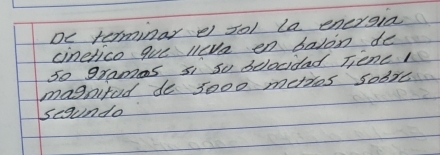 De terminar el Jol la energia
cinetico que lleva en balón de
50 gramos si su belocidad Tiene
magnitud de 5000 metros sobre
segundo